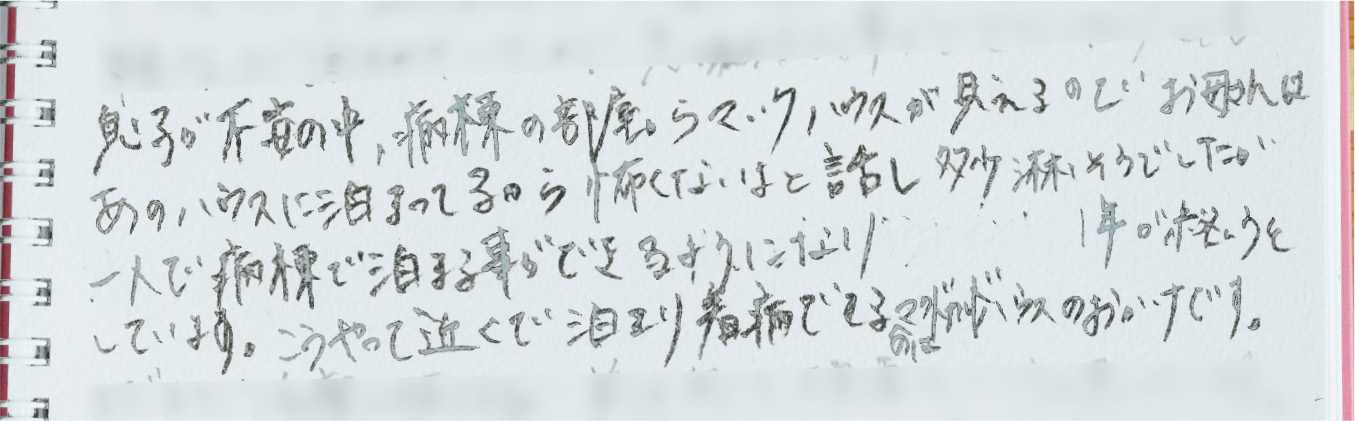 息子が不安の中、病棟の部屋からマックハウスが見えるのでお母さんは
あのハウスに泊まってるから怖くないよと話し多少淋しそうでしたが
一人で病棟で泊まる事ができるようになり 1年が経とうと
しています。こうやって近くで泊まり看病できるのはマクドナルドハウスのおかげです。